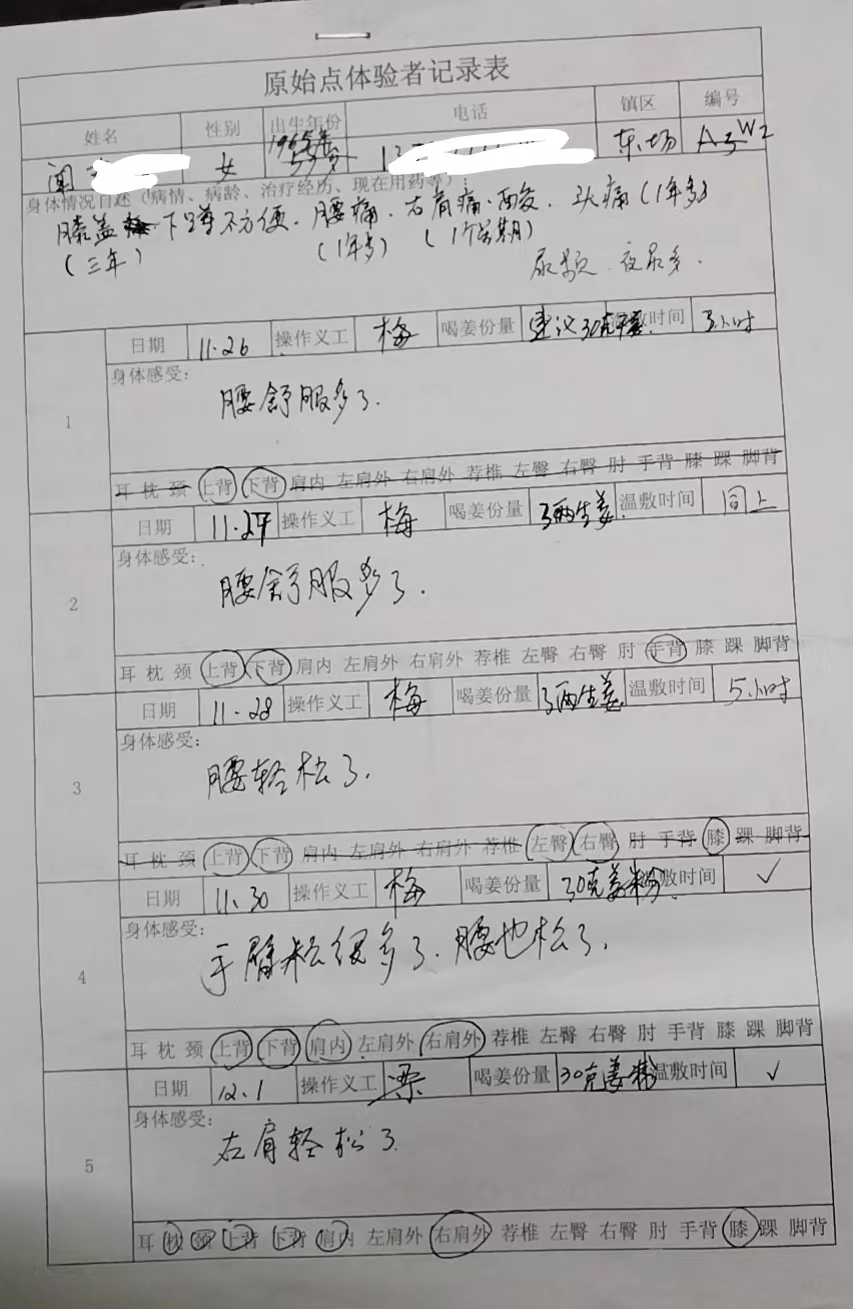 原始点体验者记录表
姓名 性别 出生年份 电话 镇区 编号
闻 女 1965年 57岁 13 东场 A3W2
身体情况自述（病情、病龄、治疗经历、现在用药等）：
膝盖 下蹲不方便. 腰痛. 右肩痛、酸. 头痛(1年多)
(三年) (1年多) (1个星期)
尿频. 夜尿多.
1
日期 11.26 操作义工 梅 喝姜份量 建议30克干姜. 时间 5小时
身体感受：
腰舒服多了.
耳 枕 颈 上背 下背 肩内 左肩外 右肩外 荐椎 左臀 右臀 肘 手背 膝 踝 脚背
2
日期 11.27 操作义工 梅 喝姜份量 3两生姜. 温敷时间 同上
身体感受：
腰舒服多了.
耳 枕 颈 上背 下背 肩内 左肩外 右肩外 荐椎 左臀 右臀 肘 手背 膝 踝 脚背
3
日期 11.28 操作义工 梅 喝姜份量 3两生姜. 温敷时间 5小时
身体感受：
腰轻松了.
耳 枕 颈 上背 下背 肩内 左肩外 右肩外 荐椎 左臀 右臀 肘 手背 膝 踝 脚背
4
日期 11.30 操作义工 梅 喝姜份量 30克姜粉. 敷时间 ✓
身体感受：
手臂松很多了. 腰也松了.
耳 枕 颈 上背 下背 肩内 左肩外 右肩外 荐椎 左臀 右臀 肘 手背 膝 踝 脚背
5
日期 12.1 操作义工 梁 喝姜份量 30克姜粉 温敷时间 ✓
身体感受：
右肩轻松了.
耳 枕 颈 上背 下背 肩内 左肩外 右肩外 荐椎 左臀 右臀 肘 手背 膝 踝 脚背